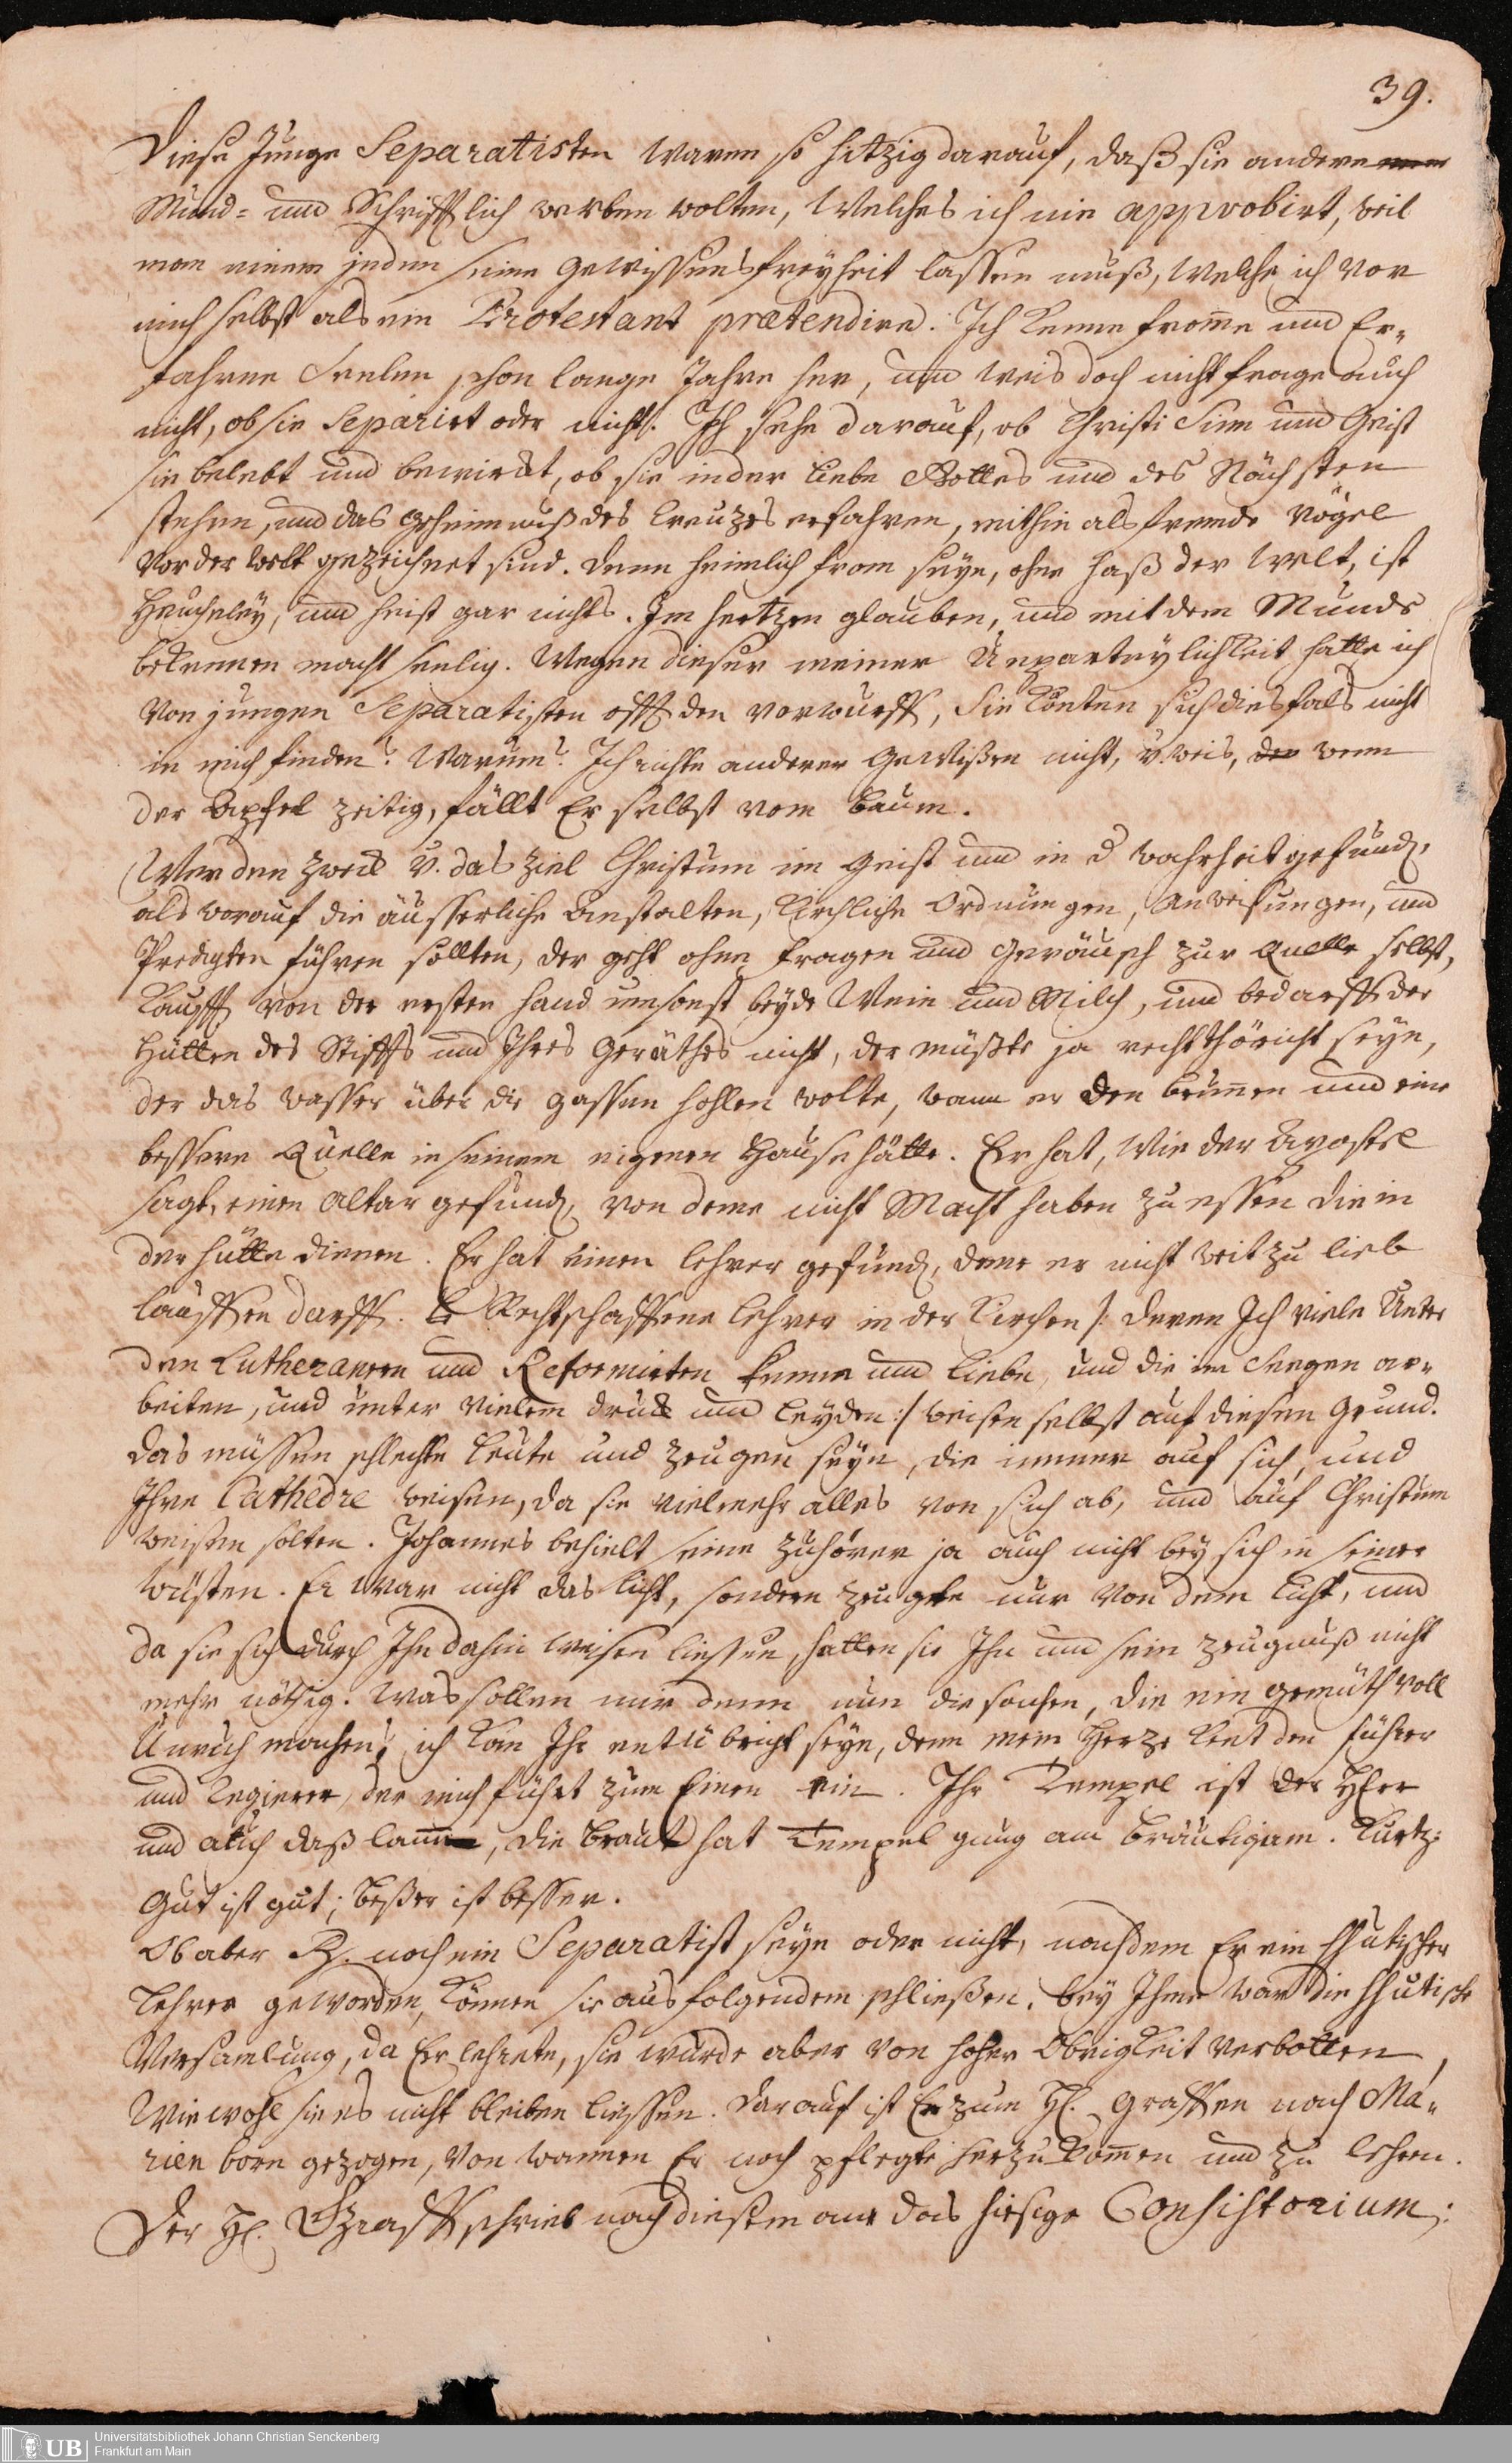 39.
Diese Junge Separatisten waren so hitzig darauf, daß sie andere
Mund- und Schrifftlich werben wolten, Welches ich nie approbirt, weil
man einem jeden seine Gewissensfreyheit lassen muß, welche ich vor
mich selbst als ein Protestant prætendire. Ich kenne from̄e und Er-
fahrne Seelen schon lange Jahre her, und weis doch nicht frage auch
nicht, ob sie Separirt oder nicht. Ich sehe darauf, ob Christi Sinn und Geist
sie belebt und bewirckt, ob sie in der Liebe Gottes und des Nächsten
stehen, und das Geheimnuß des Creuzes erfahren, mithin als fremde Vögel
vor der Welt gezeichnet sind. Denn heimlich from seyn, ohne Haß der Welt, ist
Heucheley, und heist gar nichts. Im Hertzen glauben, und mit dem Munde
bekennen macht seelig. Wegen dieser meiner Unparteylichkeit hatte ich
von jungen Separatisten offt den vorwurff, Sie könten sich diesfals nicht
in mich finden? Warum? Ich richte anderer Gewißen nicht, u. weis, wenn
der Apfel zeitig, fällt Er selbst vom Baum.
Wer den zweck u. das Ziel Christum im Geist und in d. wahrheit gefund.
als worauf die äusserliche Anstalten, Kirchliche Ordnungen, Anweisungen, und
Predigten führen sollten, der geht ohne fragen und Geräusch zur Quelle selbst,
Kaufft von der ersten Hand umsonst beyde Wein und Milch, und bedarff der
Hütten des Stiffts und Ihres Geräthes nicht, der müßte ja recht thöricht seyn,
der das wasser über die gassen hohlen wolte, wann er den brunnen und eine
bessere Quelle in seinem eigenen Hause hätte. Er hat, wie der Apostel
sagt, einen Altar gefund. von deme nicht Macht haben zu essen die in
der Hütte dienen. Er hat einen Lehrer gefund. deme er nicht weit zu lieb
lauffen darff. Rechtschaffene Lehrer in der Kirchen /: deren Ich viele Unter
den Lutheranern und Reformirten kenne und liebe, und die im Seegen ar-
beiten, und unter vielem druck und Leyden :/ weisen selbst auf diesen Grund.
Das müssen schlechte Leute und Zeugen seyn, die immer auf sich, und
Ihre Cathedre weisen, da sie vielmehr alles von sich ab, und auf Christum
weisen solten. Johannes behielt seine Zuhörer ja auch nicht bey sich in seiner
Wüsten. Er war nicht das Licht, sondern zeugte nur von dem Licht, und
da sie sich durch Ihn dahin weisen liessen, hatten sie Ihn und sein Zeugnuß nicht
mehr nöthig. Was sollen mir denn nun die sachen, die ein gemüth voll
Unruh machen, ich kan Ihr entübrigt seyn, denn mein Hertze kent den führer
und Regierer, der mich führt zum Einen ein. Ihr Tempel ist der HErr
und auch daß lamm, die Braut hat Tempel gnug am Bräutigam. Kurtz:
Gut ist gut; Beßer ist besser.
Ob aber R. noch ein Separatist seye oder nicht, nachdem Er ein HHutischer
Lehrer geworden, können sie aus folgendem schließen. bey Ihme war die HHutische
Versamlung, da Er lehrete, sie wurde aber von hoher Obrigkeit verbotten,
Wiewohl sie es nicht bleiben liessen. Darauf ist Er zum H. Graffen nach Ma-
rienborn gezogen, von wannen Er noch pflegte herzukom̄en und zu lehren.
Der H. Graff schrieb nach diesem an das hiesige Consistorium:
UB Universitätsbibliothek Johann Christian Senckenberg
Frankfurt am Main